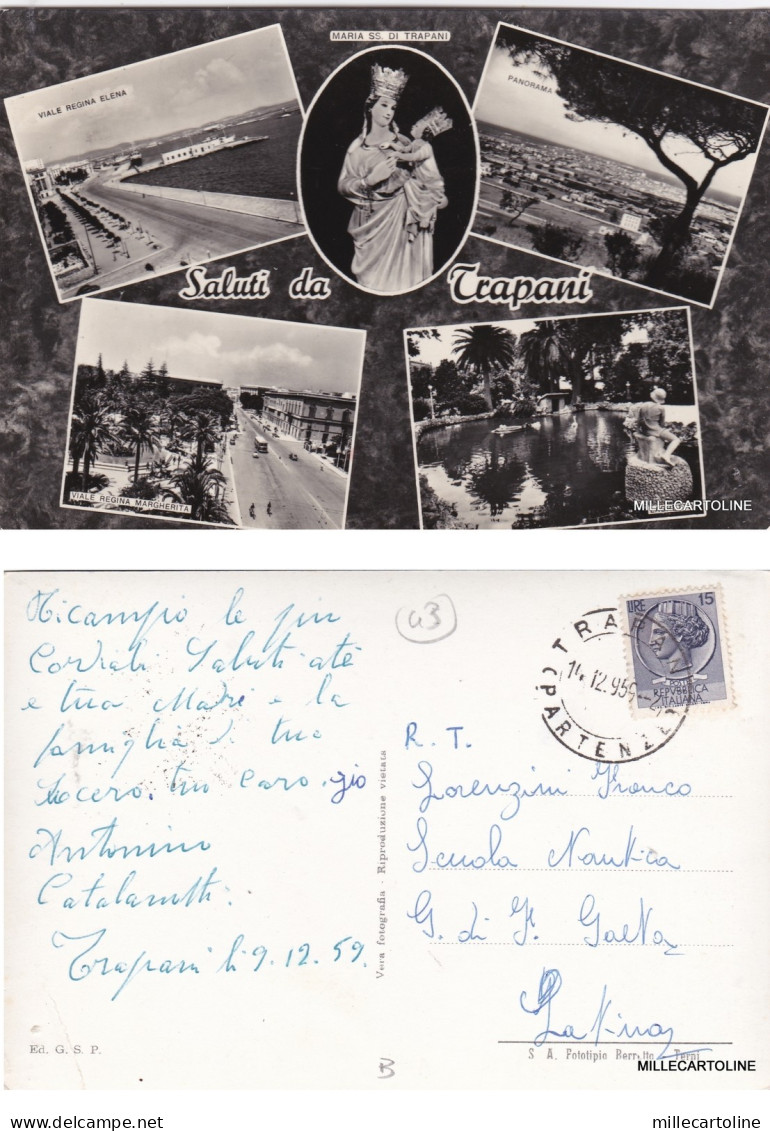 MARIA SS. DI TRAPANI
VIALE REGINA ELENA
PANORAMA
Saluti da Trapani
VIALE REGINA MARGHERITA
MILLECARTOLINE
Ricampio le più
Cordiali Saluti a tè
e tua Madre e la
famiglia di tuo
Socero. tuo Caro. zio
Antonino
Catalanotti.
Trapani li 9.12.59.
Ed. G. S. P.
Vera fotografia - Riproduzione vietata
43
LIRE 15
POSTE
REPVBBLICA
ITALIANA
TRAPANI
14.12.959
PARTENZE
R. T.
Lorenzini Franco
Scuola Nautica
G. di F. Gaeta
Latina
S. A. Fototipia Berretta - Terni
MILLECARTOLINE
delcampe.net
millecartoline